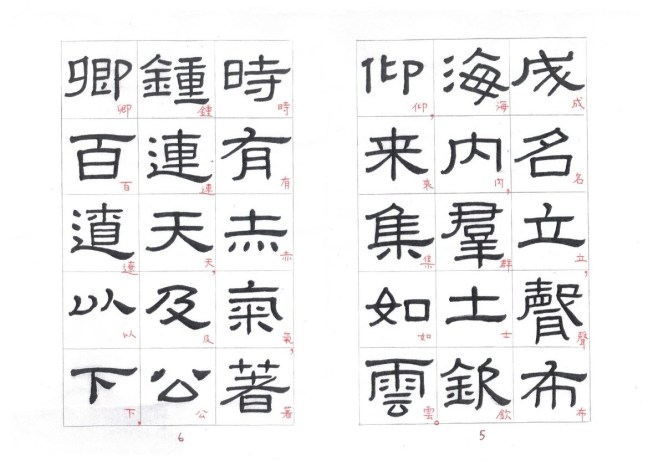 成名立聲布
成名立，聲布
海内羣士欽
海內，群士欽
仰来集如雲
仰，來集如雲。
5
時有赤氣著
時有赤氣，著
鍾連天及公
鍾連天，及公
卿百遼以下
卿百遼以下。
6